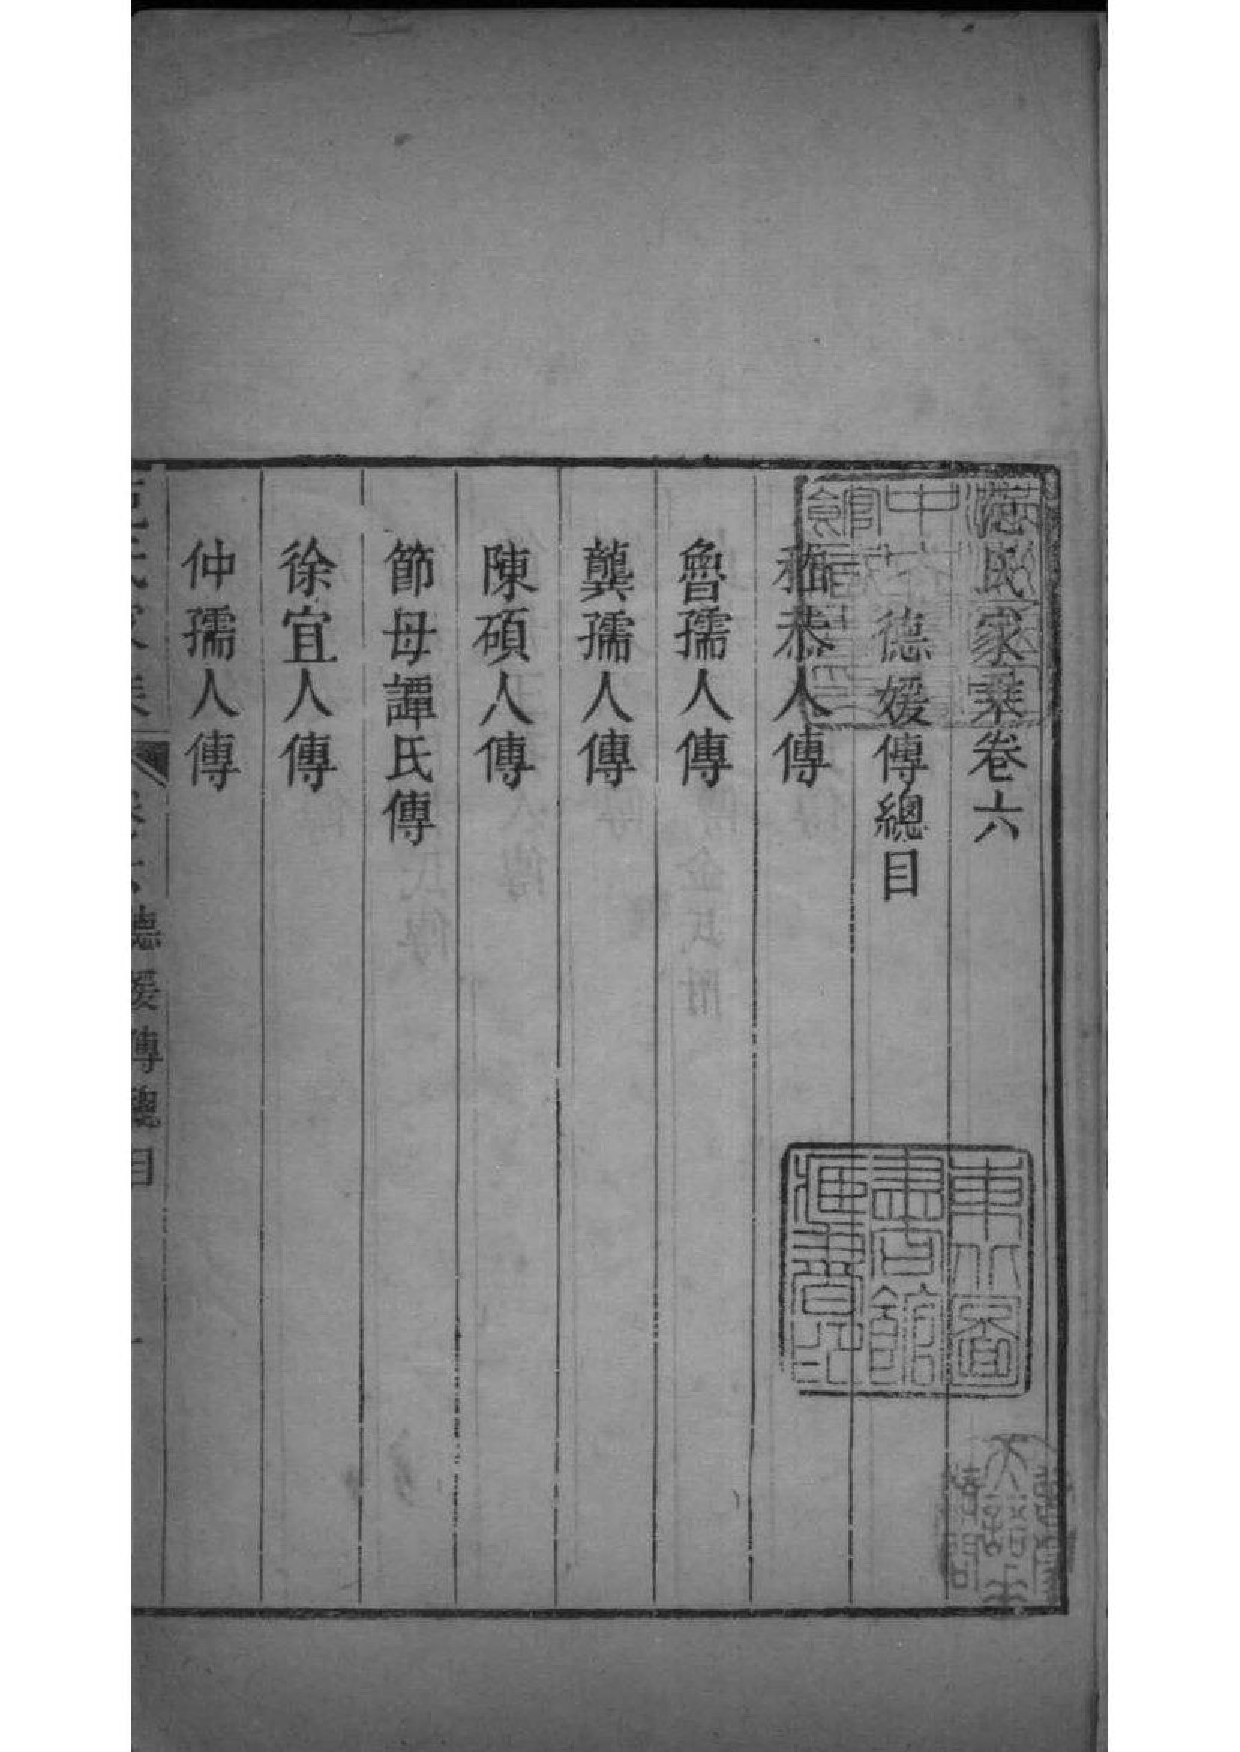 范氏家乘卷六
德媛傳總目
恭人傳
魯孺人傳
龔孺人傳
陳碩人傳
節母譚氏傳
徐宜人傳
仲孺人傳
范氏家乘 卷六 德媛傳總目 一
東北圖
書館